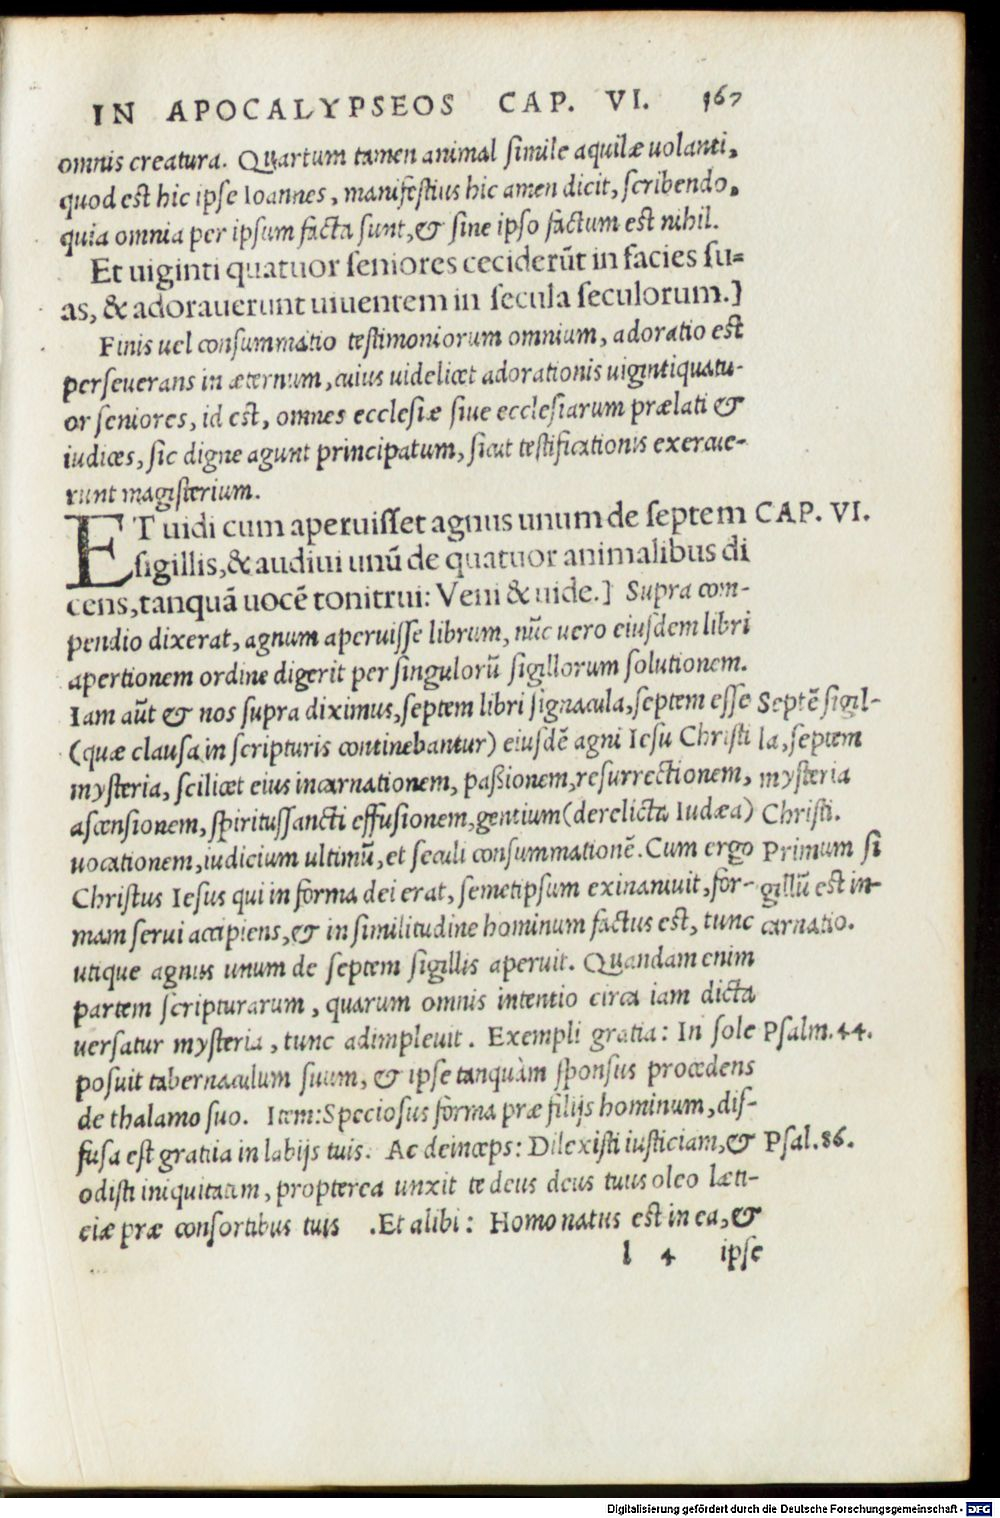 IN APOCALYPSEOS CAP. VI. 167
omnis creatura. Quartum tamen animal simile aquilæ uolanti,
quod est hic ipse Ioannes, manifestius hic amen dicit, scribendo,
quia omnia per ipsum facta sunt, & sine ipso factum est nihil.
Et uiginti quatuor seniores ceciderūt in facies su=
as, & adorauerunt uiuentem in secula seculorum.]
Finis uel consummatio testimoniorum omnium, adoratio est
perseuerans in æternum, cuius uidelicet adorationis uigintiquatu-
or seniores, id est, omnes ecclesiæ siue ecclesiarum prælati &
iudices, sic digne agunt principatum, sicut testificationis exercue-
runt magisterium.
ET uidi cum aperuisset agnus unum de septem CAP. VI.
sigillis, & audiui unū de quatuor animalibus di
cens, tanquā uocē tonitrui: Veni & uide.] Supra com-
pendio dixerat, agnum aperuisse librum, nūc uero eiusdem libri
apertionem ordine digerit per singulorū sigillorum solutionem.
Iam aūt & nos supra diximus, septem libri signacula, septem esse Septē sigil-
(quæ clausa in scripturis continebantur) eiusdē agni Iesu Christi la, septem
mysteria, scilicet eius incarnationem, paßionem, resurrectionem, mysteria
ascensionem, spiritussancti effusionem, gentium (derelicta Iudæa) Christi.
uocationem, iudicium ultimū, et seculi consummationē. Cum ergo Primum si
Christus Iesus qui in forma dei erat, semetipsum exinaniuit, for- gillū est in-
mam serui accipiens, & in similitudine hominum factus est, tunc carnatio.
utique agnus unum de septem sigillis aperuit. Quandam enim
partem scripturarum, quarum omnis intentio circa iam dicta
uersatur mysteria, tunc adimpleuit. Exempli gratia: In sole Psalm. 44.
posuit tabernaculum suum, & ipse tanquàm sponsus procedens
de thalamo suo. Item: Speciosus forma præ filijs hominum, dif-
fusa est gratia in labijs tuis. Ac deinceps: Dilexisti iusticiam, & Psal. 86.
odisti iniquitatem, propterea unxit te deus deus tuus oleo læti-
ciæ præ consortibus tuis . Et alibi: Homo natus est in ea, &
l 4 ipse
Digitalisierung gefördert durch die Deutsche Forschungsgemeinschaft - DFG